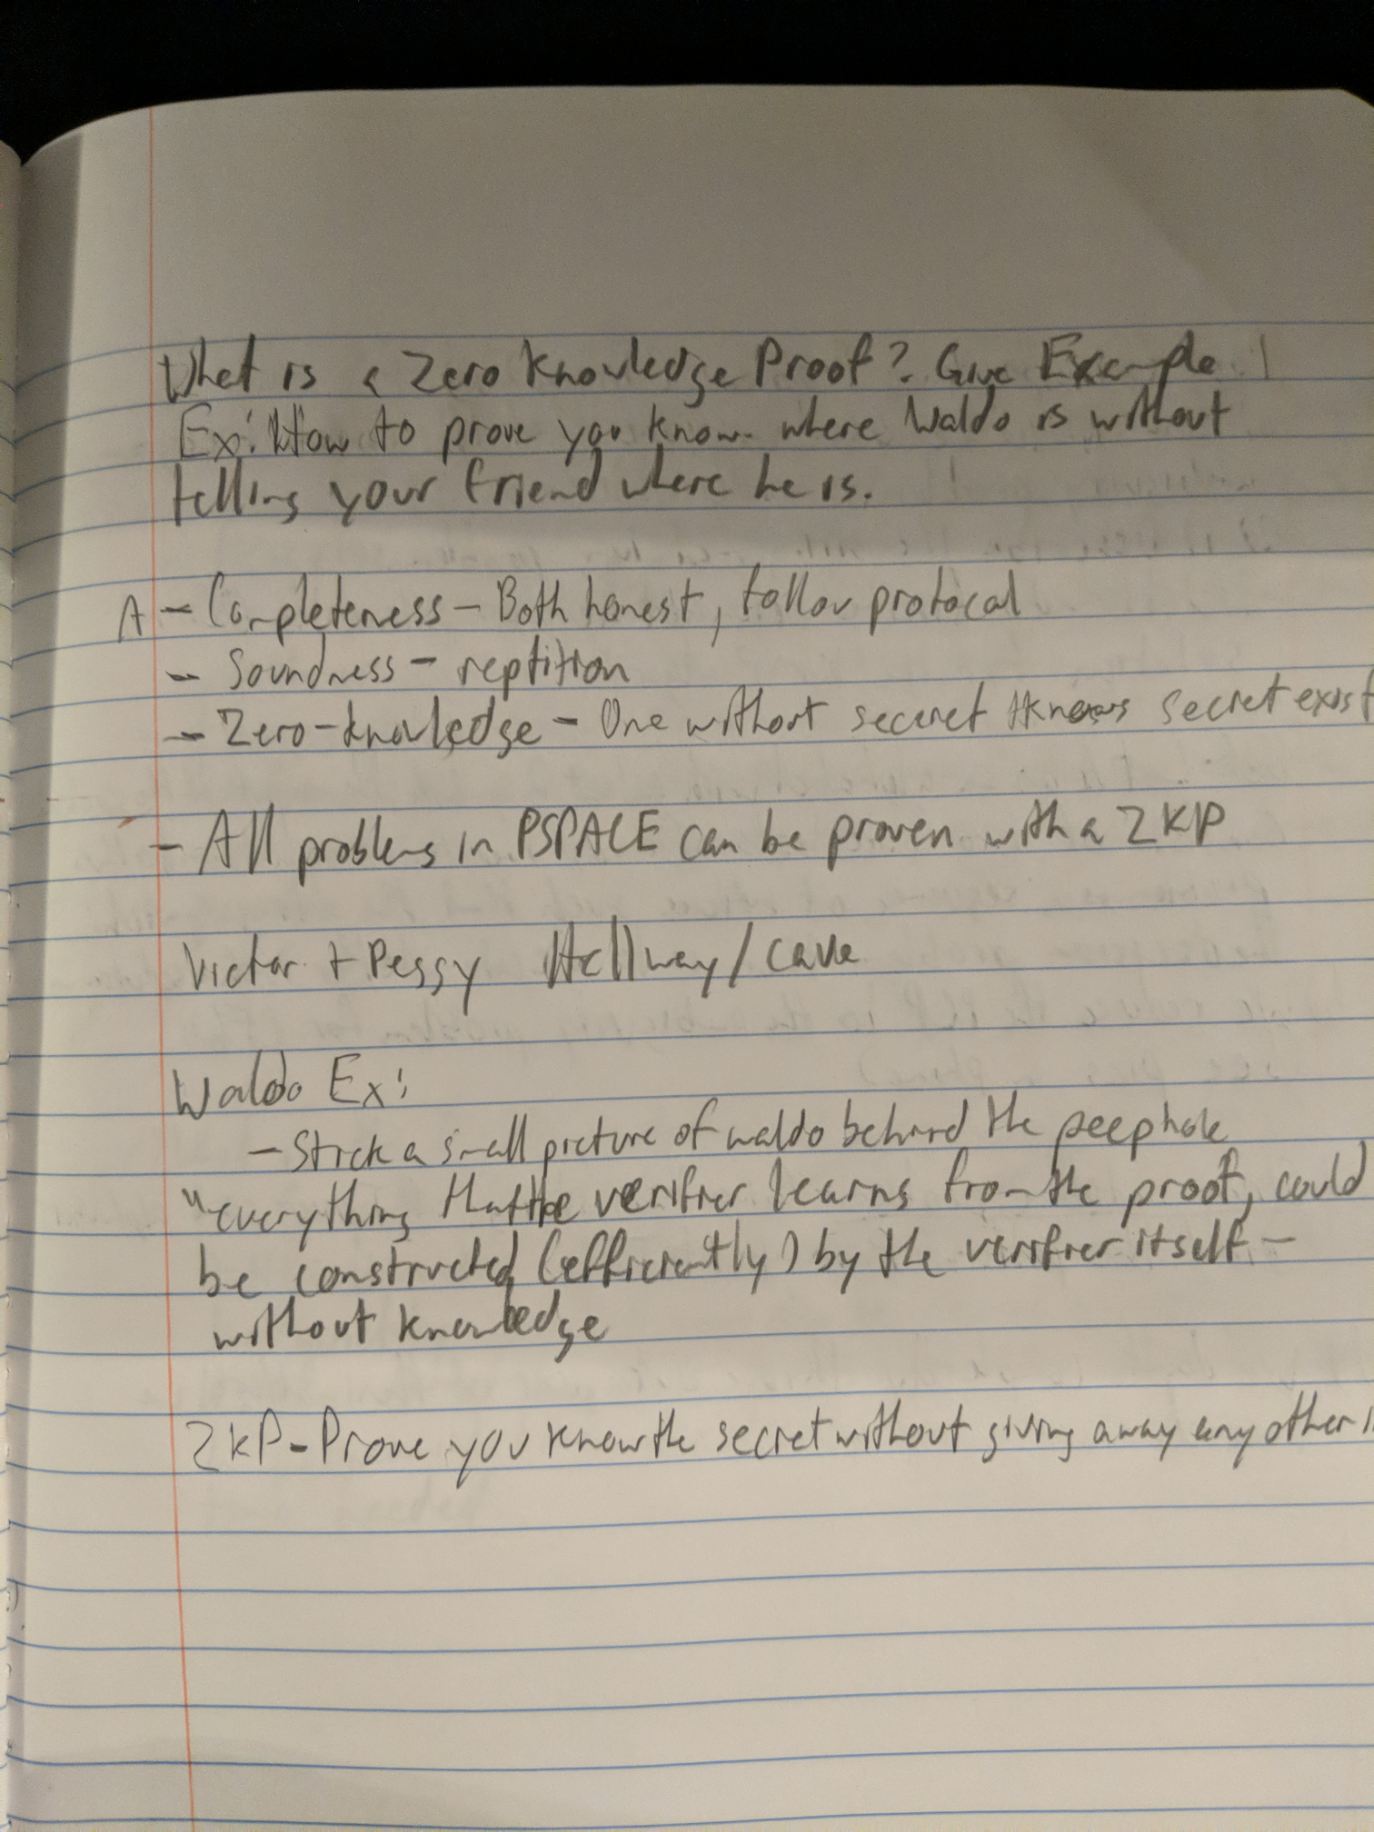 What is a Zero Knowledge Proof? Give Example!
Ex: How to prove you know where Waldo is without
telling your friend where he is.
A - Completeness - Both honest, follow protocal
- Soundness - reptition
- Zero-knowledge - One without seceret knows secret exist
- All problems in PSPACE can be proven with a ZKP
Victor + Peggy Hallway/cave
Waldo Ex:
- Stick a small picture of waldo behind the peephole
"everything that the verifier learns from the proof, could
be constructed (efficiently) by the verifier itself -
without knowledge
ZKP - Prove you know the secret without giving away any other